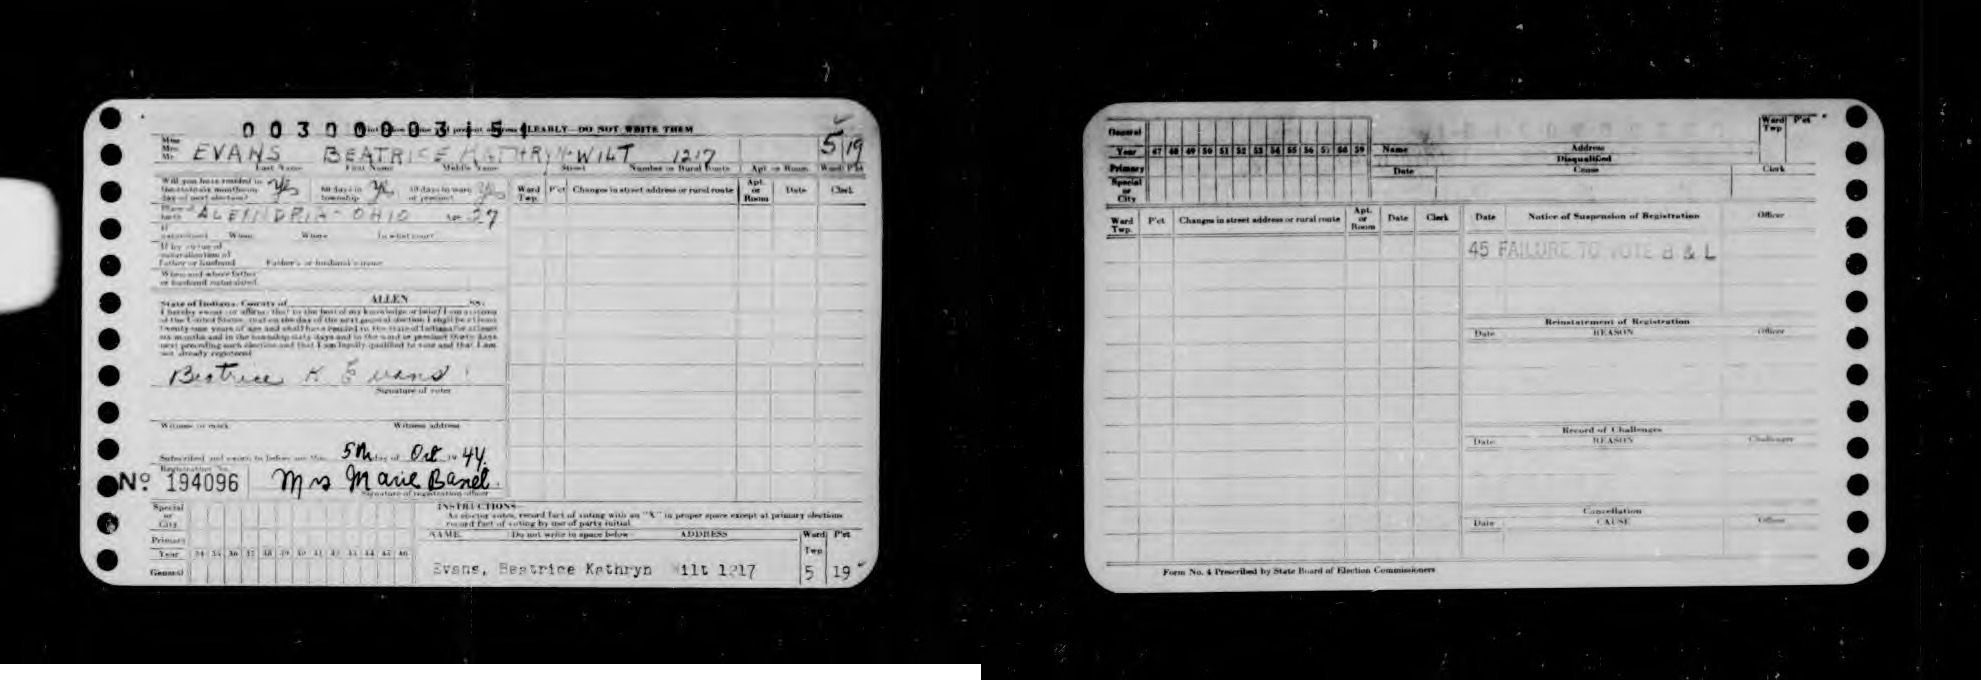 00300003151
Print below name and present address CLEARLY—DO NOT WRITE THEM
Miss
Mrs.
Mr. EVANS BEATRICE KATHRYN WILT 1217 5 19
Last Name First Name Middle Name Street Number or Rural Route Apt. or Room Ward P'ct
Will you have resided in the state six months on day of next election? Yes 60 days in township Yes 30 days in ward or precinct Yes
Ward Twp. P'ct Changes in street address or rural route Apt. or Room Date Clerk
Place of birth ALEXNDRIA-OHIO Age 27
If naturalized When Where In what court
If by virtue of naturalization of Father or husband Father's or husband's name
When and where father or husband naturalized
State of Indiana, County of ALLEN ss:
I hereby swear (or affirm) that to the best of my knowledge or belief I am a citizen
of the United States, that on the day of the next general election I shall be at least
twenty-one years of age and shall have resided in the state of Indiana for at least
six months and in the township sixty days and in the ward or precinct thirty days
next preceding such election and that I am legally qualified to vote and that I am
not already registered
Beatrice K Evans
Signature of voter
Witness to mark Witness address
Subscribed and sworn to before me this 5th day of Oct 19 44.
Registration No.
No 194096 Mrs Marie Banet
Signature of registration officer
Special or City
Primary
Year 34 35 36 37 38 39 40 41 42 43 44 45 46
General
INSTRUCTIONS—
As elector votes, record fact of voting with an "X" in proper space except at primary elections
record fact of voting by use of party initial
NAME Do not write in space below ADDRESS Ward Twp P'ct
Evans, Beatrice Kathryn Wilt 1217 5 19
General
Year 47 48 49 50 51 52 53 54 55 56 57 58 59
Primary
Special or City
Name Address Ward Twp P'ct
Disqualified
Date Cause Clerk
Ward Twp. P'ct Changes in street address or rural route Apt. or Room Date Clerk
Date Notice of Suspension of Registration Officer
45 FAILURE TO VOTE B & L
Reinstatement of Registration
Date REASON Officer
Record of Challenges
Date REASON Challenger
Cancellation
Date CAUSE Officer
Form No. 4 Prescribed by State Board of Election Commissioners